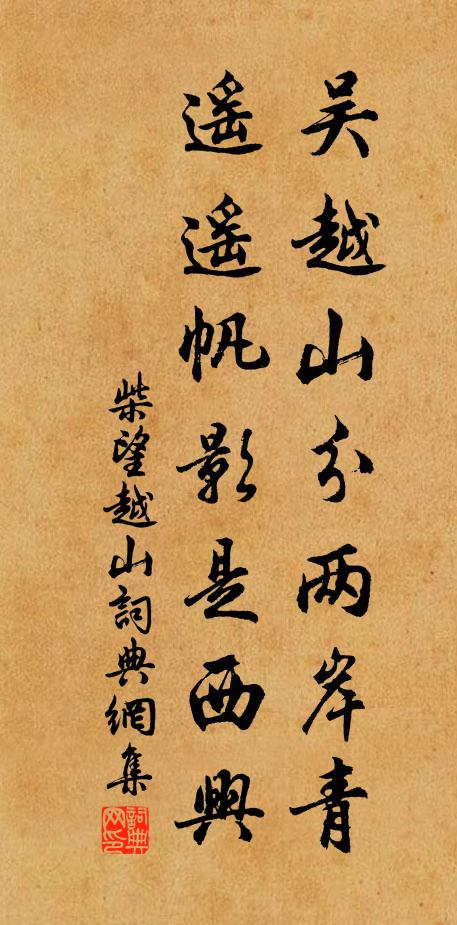 吴越山分两岸青
遥遥帆影是西興
柴望越山詞典網集
詞典网印